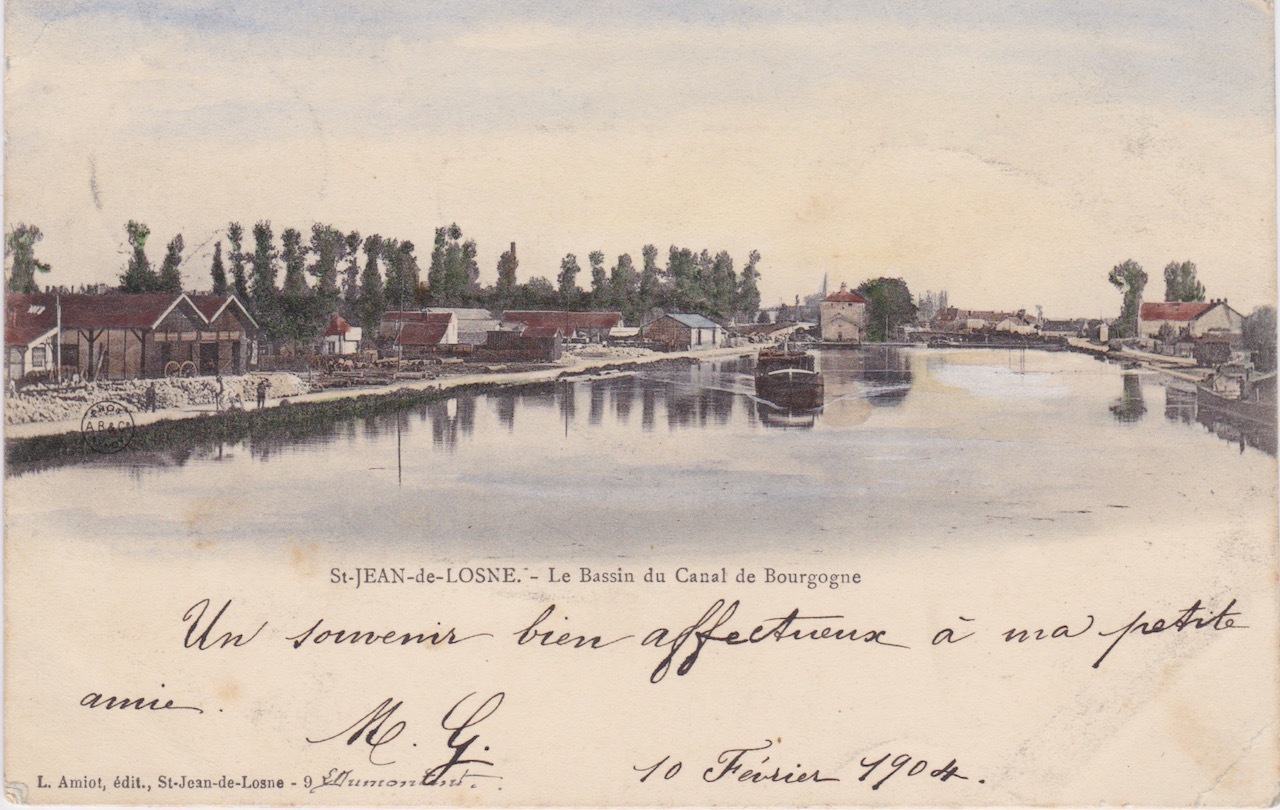 A.B.& Co
St-JEAN-de-LOSNE. - Le Bassin du Canal de Bourgogne
Un souvenir bien affectueux à ma petite
amie.
M. G.
10 Février 1904.
L. Amiot, édit., St-Jean-de-Losne - 9